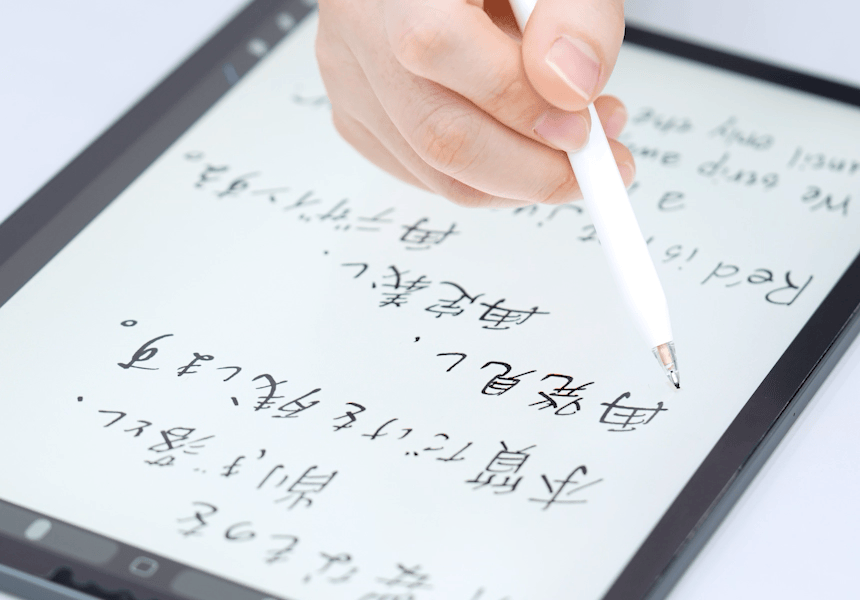 なものを
削ぎ落とし、
本質だけを残します。
再発見し、
再定義し、
再デザインする。
Re'd is
a
We strip
only the